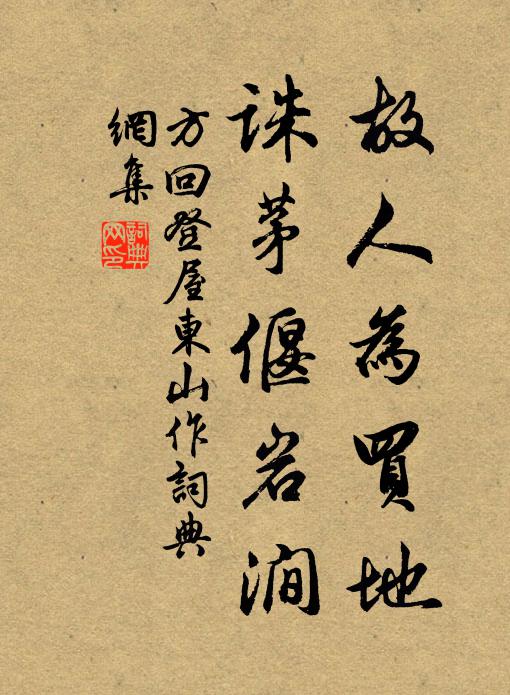 故人為買地
誅茅偃岩澗
方回登屋東山作詞典
網集
詞典
網印